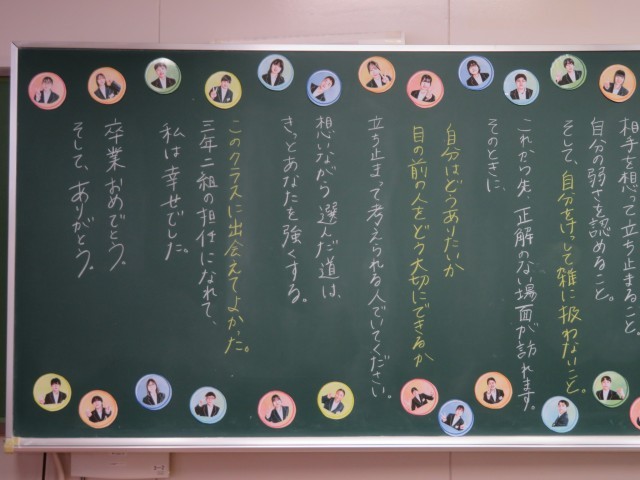 相手を想って立ち止まること。
自分の弱さを認めること。
そして、自分をけっして雑に扱わないこと。
これから先、正解のない場面が訪れます。
そのときに、
自分はどうありたいか
目の前の人をどう大切にできるか
立ち止まって考えられる人でいてください。
想いながら選んだ道は、
きっとあなたを強くする。
このクラスに出会えてよかった。
三年二組の担任になれて、
私は幸せでした。
卒業おめでとう。
そして、ありがとう。